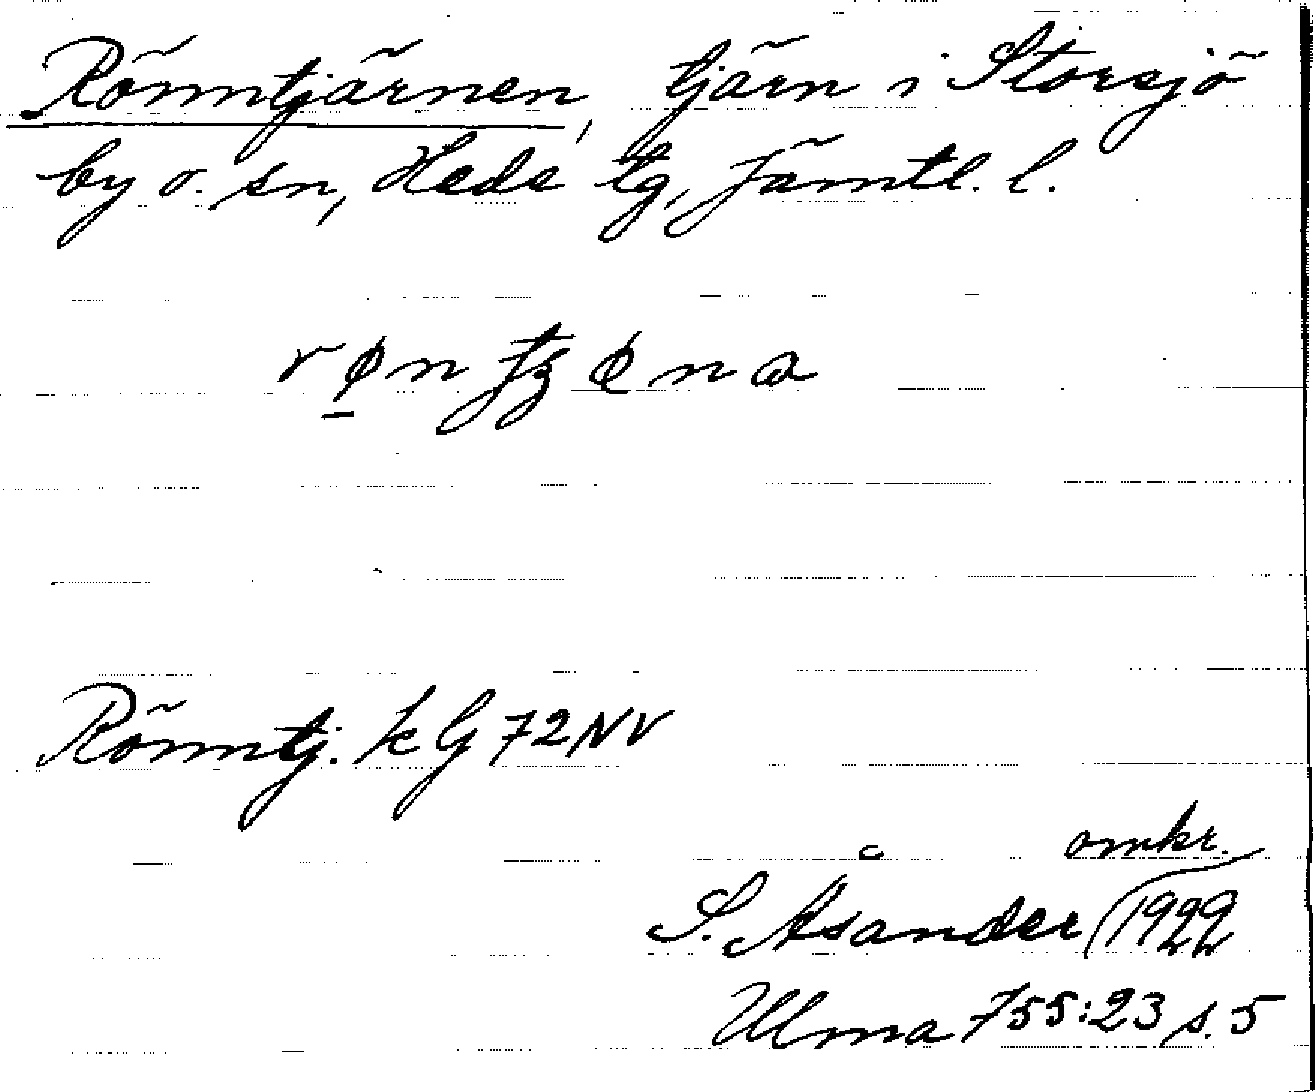 Rönntjärnen, tjärn i Storsjö
by o. sn, Hede tg, Jämtl. l.
Rönntj. k G 72 NV
omkr.
S. Åsander 1922
Ulma 755:23 s. 5